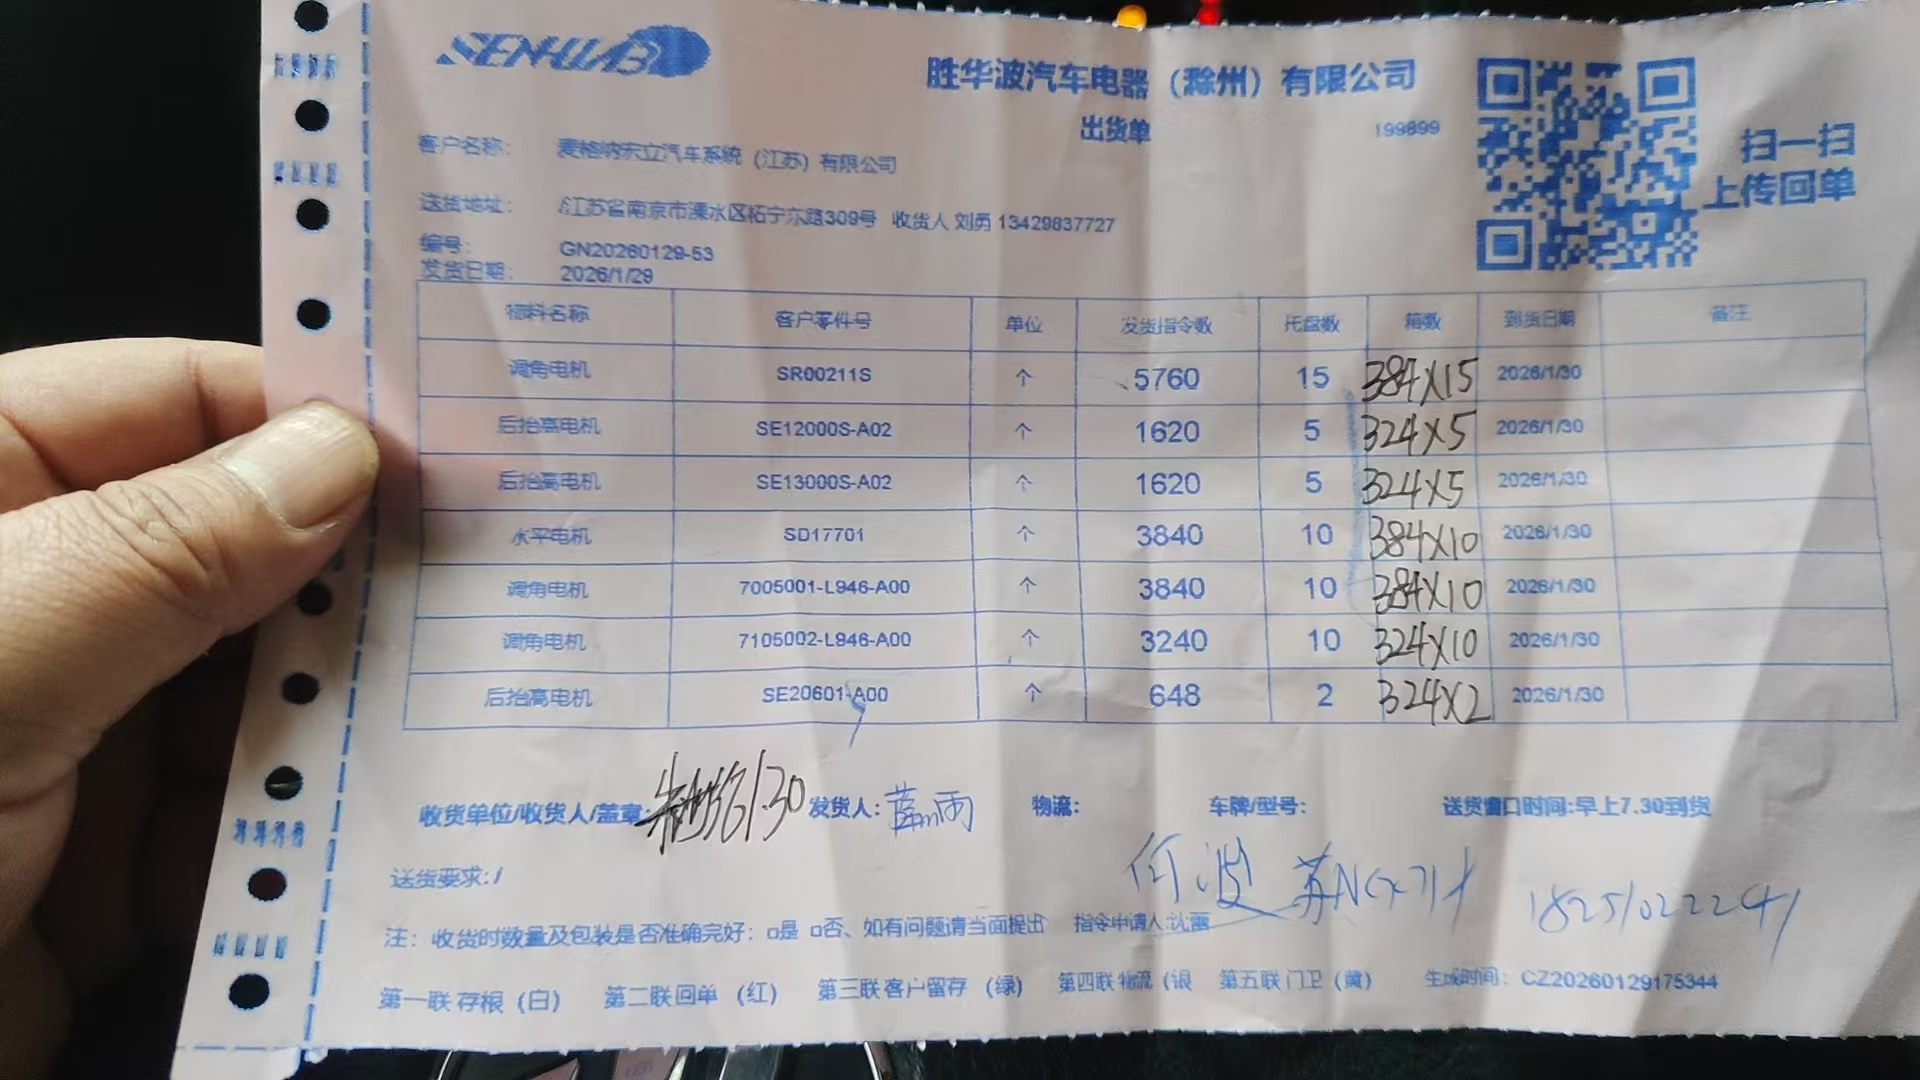 SENHUABO
胜华波汽车电器（滁州）有限公司
出货单
199899
扫一扫
上传回单
客户名称： 麦格纳宏立汽车系统（江苏）有限公司
送货地址： /江苏省南京市溧水区柘宁东路309号 收货人 刘勇 13429837727
编号： GN20260129-53
发货日期： 2026/1/29
物料名称 客户零件号 单位 发货指令数 托盘数 箱数 到货日期 备注
调角电机 SR00211S 个 5760 15 384X15 2026/1/30
后抬高电机 SE12000S-A02 个 1620 5 324X5 2026/1/30
后抬高电机 SE13000S-A02 个 1620 5 324X5 2026/1/30
水平电机 SD17701 个 3840 10 384X10 2026/1/30
调角电机 7005001-L946-A00 个 3840 10 384X10 2026/1/30
调角电机 7105002-L946-A00 个 3240 10 324X10 2026/1/30
后抬高电机 SE20601-A00 个 648 2 324X2 2026/1/30
收货单位/收货人/盖章: 1.30 发货人: 物流: 车牌/型号: 送货窗口时间:早上7.30到货
何波 18251022241
送货要求:/
注：收货时数量及包装是否准确完好：□是 □否、如有问题请当面提出 指令申请人:沈
第一联 存根（白） 第二联 回单（红） 第三联 客户留存（绿） 第四联 物流（银 第五联 门卫（黄） 生成时间：CZ20260129175344